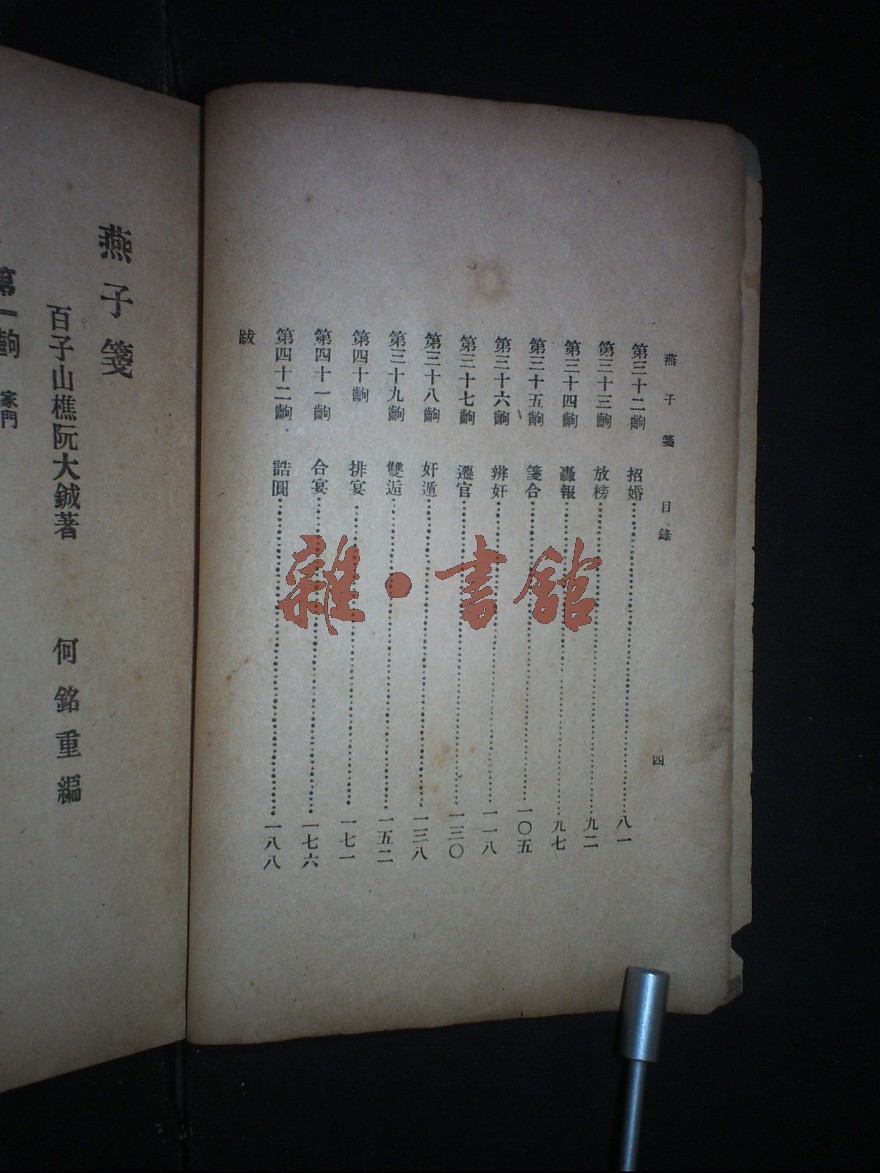 燕子箋 目錄 四
第三十二齣 招婚 八一
第三十三齣 放榜 九二
第三十四齣 轟報 九七
第三十五齣 箋合 一〇五
第三十六齣 辨奸 一一八
第三十七齣 遷官 一三〇
第三十八齣 奸遁 一三八
第三十九齣 雙逅 一五二
第四十齣 排宴 一七一
第四十一齣 合宴 一七六
第四十二齣 誥圓 一八八
跋
燕子箋
百子山樵阮大鋮著 何銘重編
第一齣 家門
雜·書館